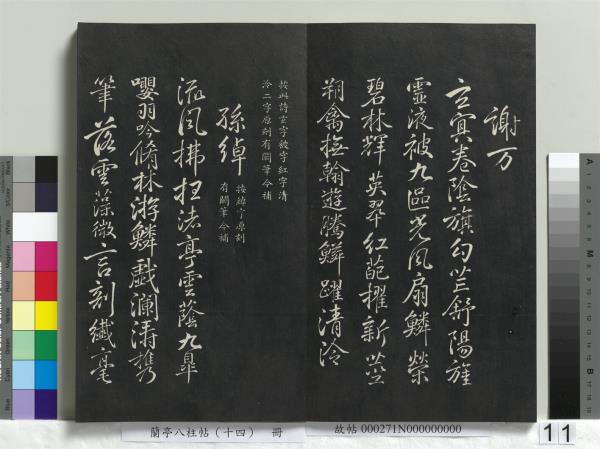 謝万
玄冥卷陰旗勾芒舒陽旌
靈液被九區光風扇鱗榮
碧林輝英翠紅葩擢新莖
翔禽撫翰遊騰鱗躍清泠
按此詩玄字被字紅字清
泠二字原刻有闕筆今補
孫綽
按綽字原刻
有闕筆今補
流風拂枉渚亭雲蔭九皐
嚶羽吟脩林游鱗戲瀾濤攜
筆落雲藻微言剖纖毫
蘭亭八柱帖（十四） 冊
故帖 000271N000000000
11